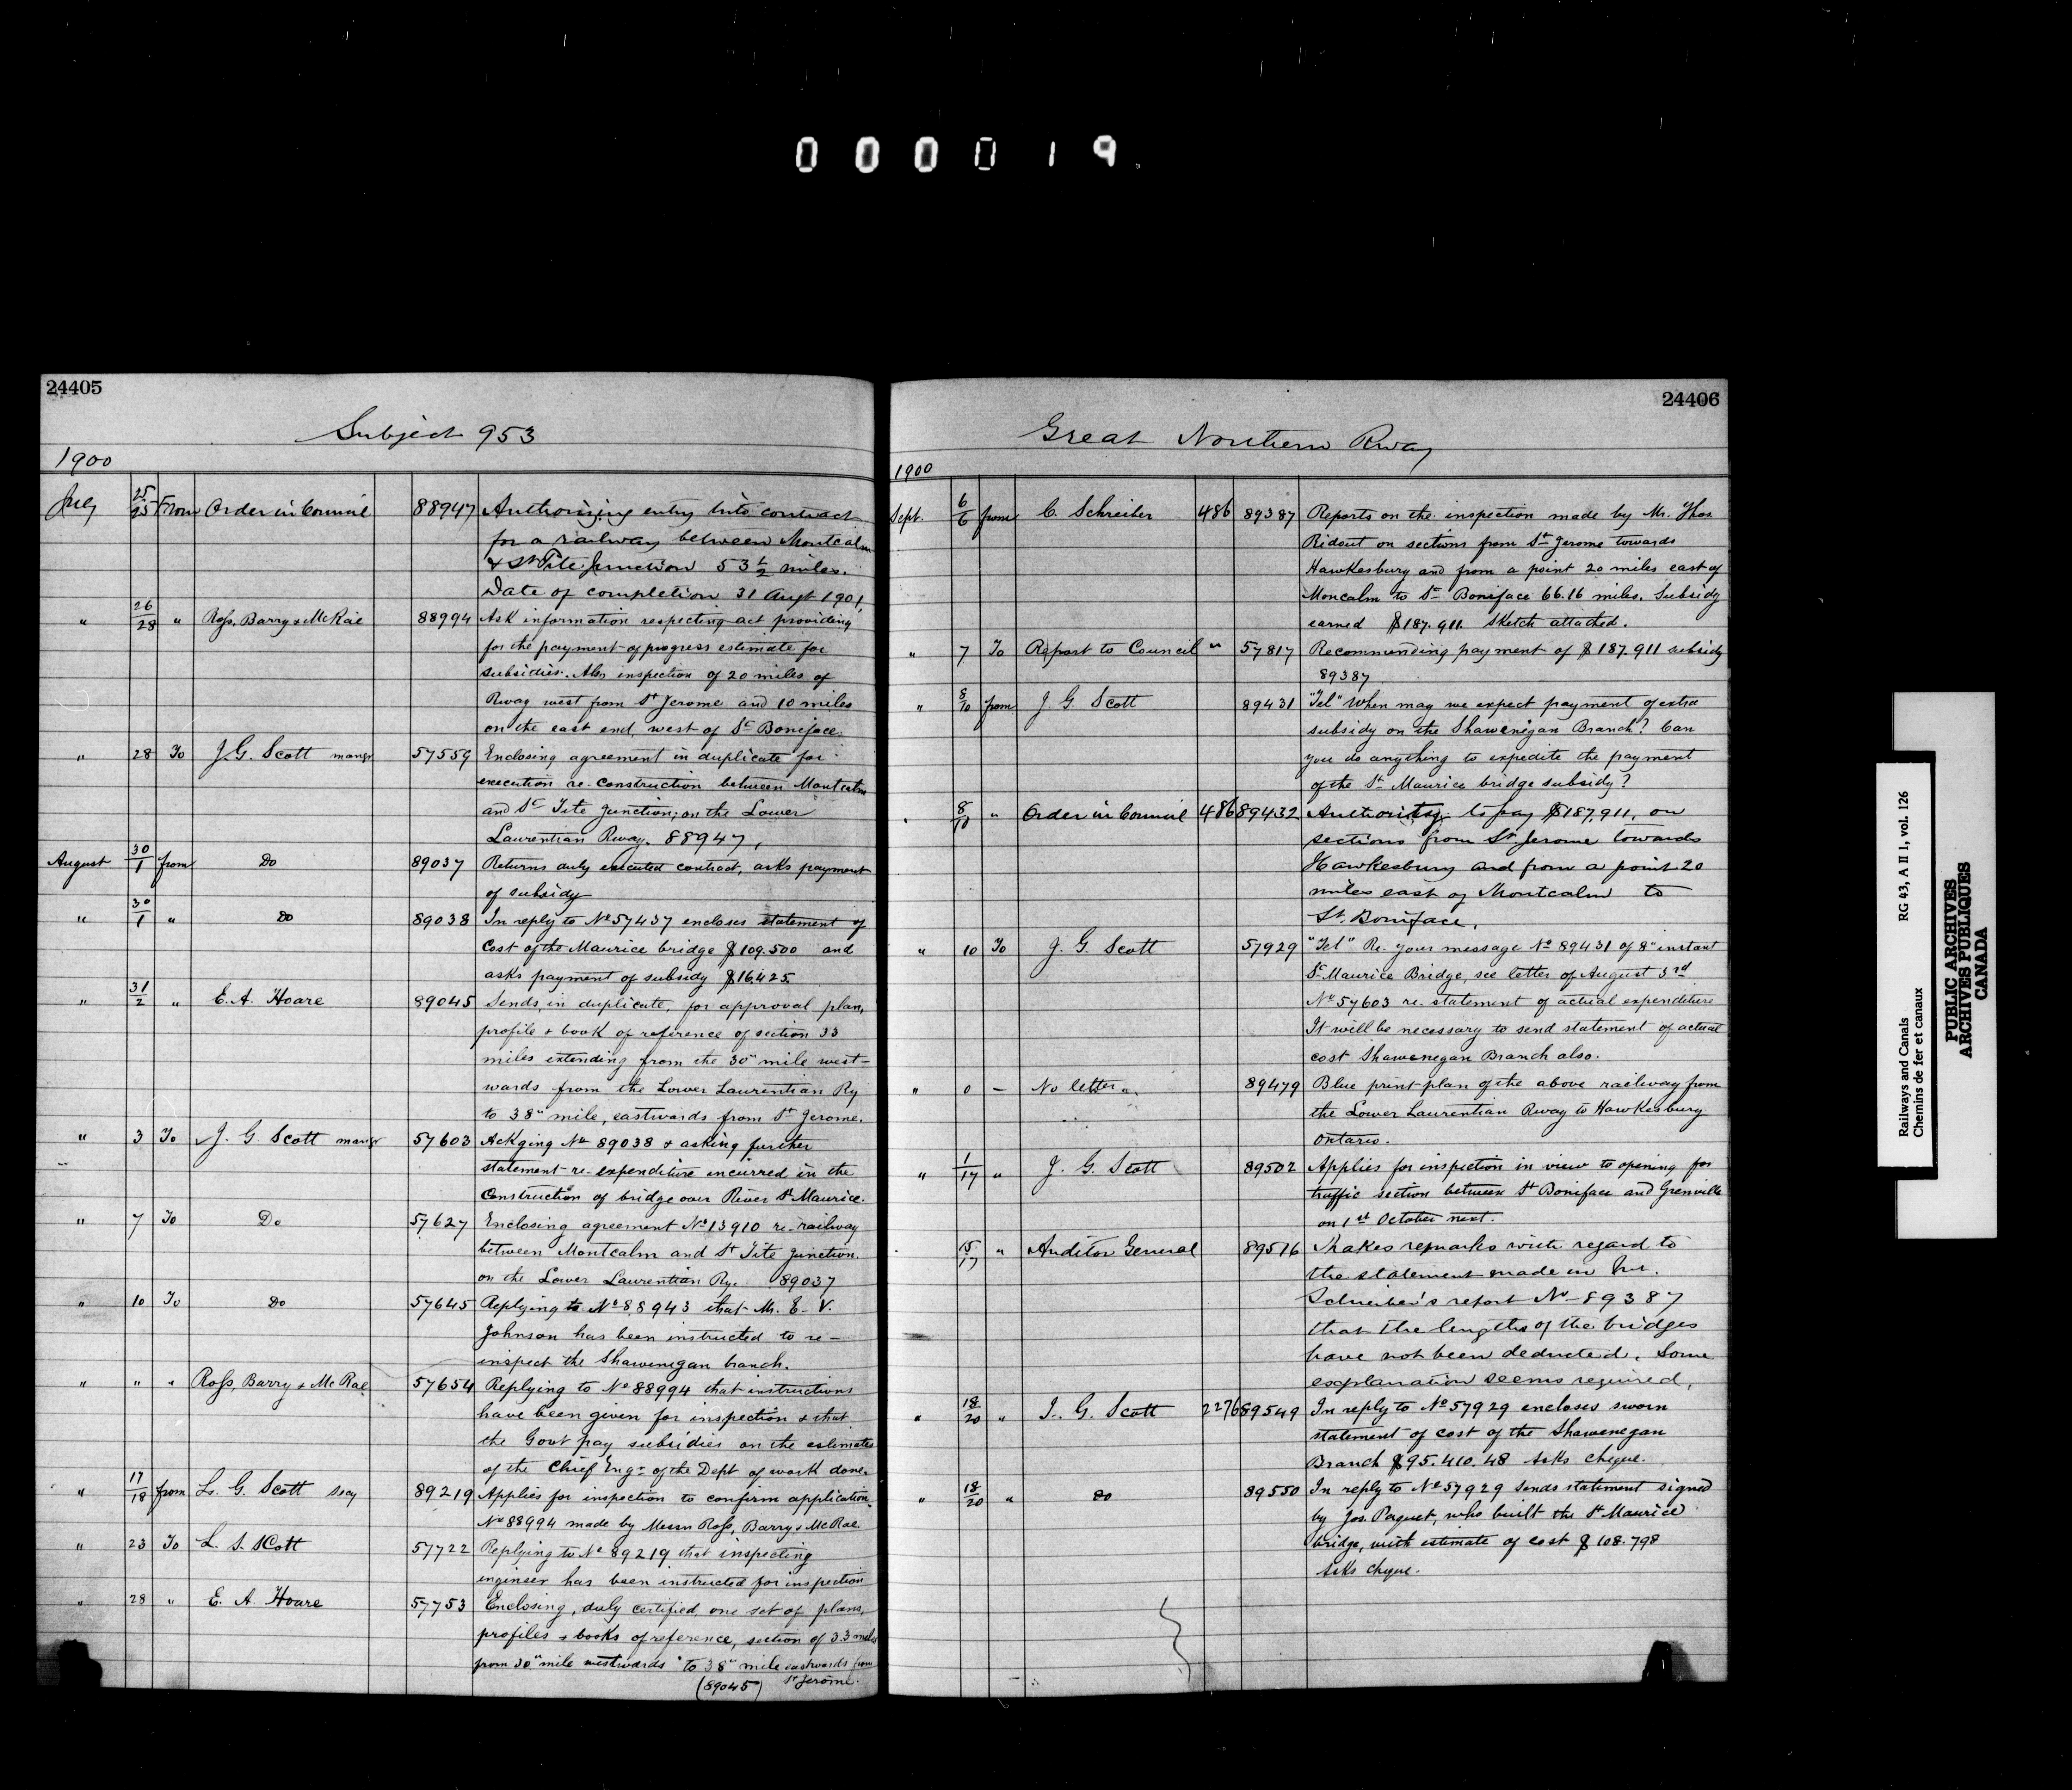 000019
24405
Subject 953
1900
July 25/25 From Order in Council 88947 Authorizing entry into contract
for a railway between Montcalm
& St Tite Junction 53 1/2 miles.
Date of completion 31 Augt 1901,
" 26/28 " Ross, Barry & McRae 88994 Ask information respecting act providing
for the payment of progress estimate for
subsidies. Also inspection of 20 miles of
Rway west from St Jerome and 10 miles
on the east end, west of St Boniface.
" 28 To J. G. Scott mangr 57559 Enclosing agreement in duplicate for
execution re construction between Montcalm
and St Tite Junction; on the Lower
Laurentian Rway. 88947,
August 30/1 from Do 89037 Returns duly executed contract, asks payment
of subsidy
" 30/1 " Do 89038 In reply to No 57437 encloses statement of
Cost of the Maurice bridge $109.500 and
asks payment of subsidy $16425.
" 31/2 " E. A. Hoare 89045 Sends, in duplicate, for approval plan,
profile & book of reference of section 33
miles extending from the 30" mile west-
wards from the Lower Laurentian Ry
to 38" mile, eastwards from St Jerome.
" 3 To J. G Scott mangr 57603 Ackging No 89038 & asking further
statement re expenditure incurred in the
Construction of bridge over River St Maurice.
" 7 To Do 57627 Enclosing agreement No 13910 re railway
between Montcalm and St Tite Junction.
on the Lower Laurentian Ry. 89037
" 10 To Do 57645 Replying to No 88943 that Mr. E. V.
Johnson has been instructed to re-
inspect the Shawenegan branch.
" " " Ross, Barry & McRae 57654 Replying to No 88994 that instructions
have been given for inspection & that
the Govt pay subsidies on the estimates
of the Chief Engr of the Dept of work done.
" 17/18 from L. G. Scott secy 89219 Applies for inspection to confirm application
No 88994 made by Messrs Ross, Barry & McRae.
" 23 To L. S. Scott 57722 Replying to No 89219 that inspecting
engineer has been instructed for inspection
" 28 " E. A. Hoare 57753 Enclosing, duly certified, one set of plans,
profiles & books of reference, section of 33 miles
from 30" mile westwards to 38" mile eastwards from
(89045) St Jerome.
24406
Great Northern Rway
1900
Sept. 6/6 from C. Schreiber 486 89387 Reports on the inspection made by Mr. Thos.
Ridout on sections from St Jerome towards
Hawkesbury and from a point 20 miles east of
Moncalm to St Boniface 66.16 miles. Subsidy
earned $187.911. Sketch attached.
" 7 To Report to Council " 57817 Recommending payment of $187.911 subsidy
89387
" 8/10 from J. G. Scott 89431 "Tel" When may we expect payment of extra
subsidy on the Shawenigan Branch? Can
you do anything to expedite the payment
of the St Maurice bridge subsidy?
" 8/10 " Order in Council 486 89432 Authority to pay $187,911, on
sections from St. Jerome towards
Hawkesbury and from a point 20
miles east of Montcalm to
St. Boniface.
" 10 To J. G. Scott 57929 "Tel" Re. your message No 89431 of 8" instant
St Maurice Bridge, see letter of August 3rd
No 57603 re. statement of actual expenditure
It will be necessary to send statement of actual
cost Shawenegan Branch also.
" 0 - No letter 89479 Blue print plan of the above railway from
the Lower Laurentian Rway to Hawkesbury
Ontario.
" 1/17 " J. G. Scott 89502 Applies for inspection in view to opening for
traffic section between St Boniface and Grenville
on 1st October next.
" 15/17 " Auditor General 89516 Makes remarks with regard to
the statement made in Mr.
Schreiber's report No 89387
that the lengths of the bridges
have not been deducted. Some
explanation seems required,
" 18/20 " J. G. Scott 2276 89549 In reply to No 57929 encloses sworn
statement of cost of the Shawenegan
Branch $95.410.48 Asks cheque.
" 18/20 " Do 89550 In reply to No 57929 sends statement signed
by Jos. Paquet, who built the St Maurice
bridge, with estimate of cost $108.798
Asks cheque.
Railways and Canals RG 43, A II 1, vol. 126
Chemins de fer et canaux
PUBLIC ARCHIVES
ARCHIVES PUBLIQUES
CANADA